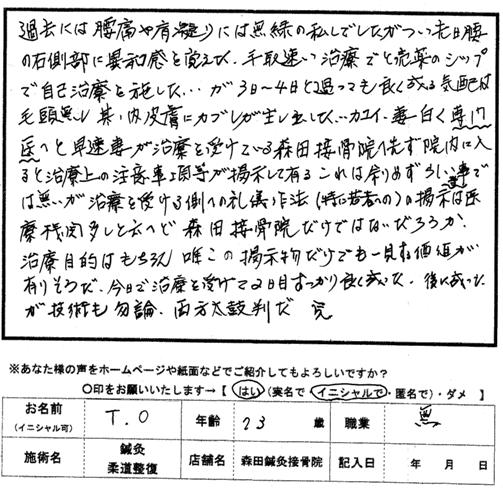 過去には腰痛や肩凝りには無縁の私でしたがつい先日腰
の右側部に異和感を覚えた、手取速い治療でと売薬のシップ
で自己治療を施した…が3日〜4日と過っても良く成る気配は
毛頭無し 其の内皮膚にカブレが生じ出した…カユイ、妻曰く専門
医へと早速妻が治療を受けている森田接骨院へ先ず院内に入
ると治療上の注意事項等が掲示して有るこれは余りめずらしい事で
は無いが治療を受ける側への礼儀作法(特に若者への)の掲示は医
療機関多しと云へど森田接骨院だけではないだろうか、
治療目的はもちろん唯この掲示物だけでも一見する価値が
有りそうだ、今日で治療を受けて2日目すっかり良く成った、後に成った
が技術も勿論、両方太鼓判だ 完
※あなた様の声をホームページや紙面などでご紹介してもよろしいですか?
〇印をお願いいたします→【 はい (実名で・イニシャルで・匿名で)・ダメ 】
お名前 (イニシャル可) T.O 年齢 73 歳 職業 無
施術名 鍼灸 柔道整復 店舗名 森田鍼灸接骨院 記入日 年 月 日